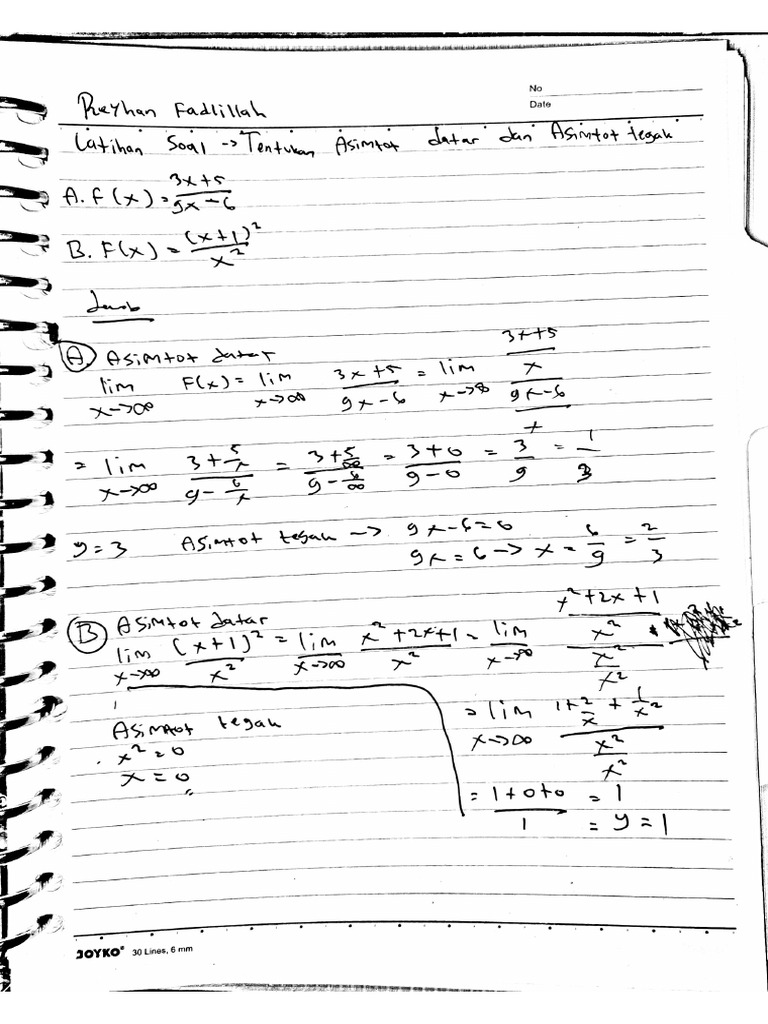 No
Date
Reyhan Fadlillah
Latihan Soal -> Tentukan Asimtot datar dan Asimtot tegak
A. F(x) = (3x+5)/(9x-6)
B. F(x) = (x+1)²/x²
Jawab
(A) Asimtot datar
lim x->∞ F(x) = lim x->∞ (3x+5)/(9x-6) = lim x->∞ ((3x+5)/x)/((9x-6)/x)
= lim x->∞ (3+5/x)/(9-6/x) = (3+5/∞)/(9-6/∞) = (3+0)/(9-0) = 3/9 = 1/3
y=3 Asimtot tegak -> 9x-6=0
9x=6 -> x = 6/9 = 2/3
(B) Asimtot datar
lim x->∞ (x+1)²/x² = lim x->∞ (x²+2x+1)/x² = lim x->∞ ((x²+2x+1)/x²)/(x²/x²)
= lim x->∞ (1+2/x+1/x²)/(x²/x²)
= (1+0+0)/1 = 1
= y=1
Asimtot tegak
x²=0
x=0
JOYKO® 30 Lines, 6 mm